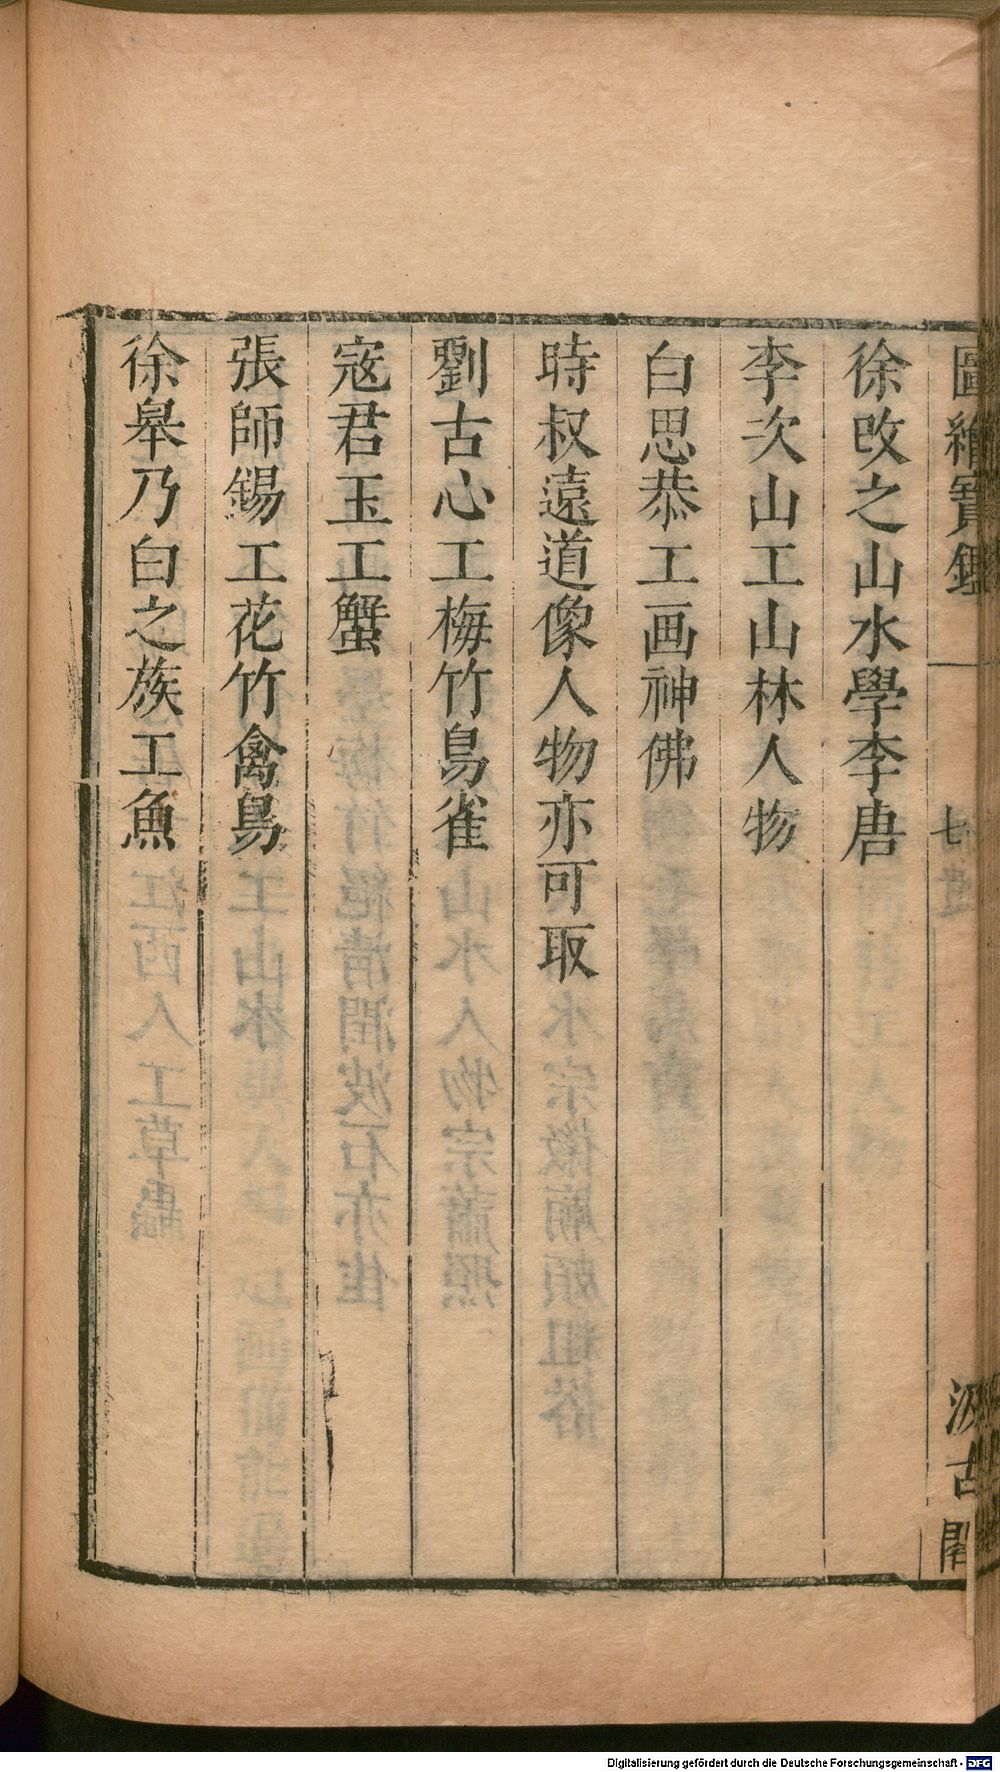 圖繪寶鑑
七
汲古閣
徐改之山水學李唐
李次山工山林人物
白思恭工画神佛
時叔遠道像人物亦可取
劉古心工梅竹鳥雀
寇君玉工蟹
張師錫工花竹禽鳥
徐皋乃白之族工魚
Digitalisierung gefördert durch die Deutsche Forschungsgemeinschaft - DFG